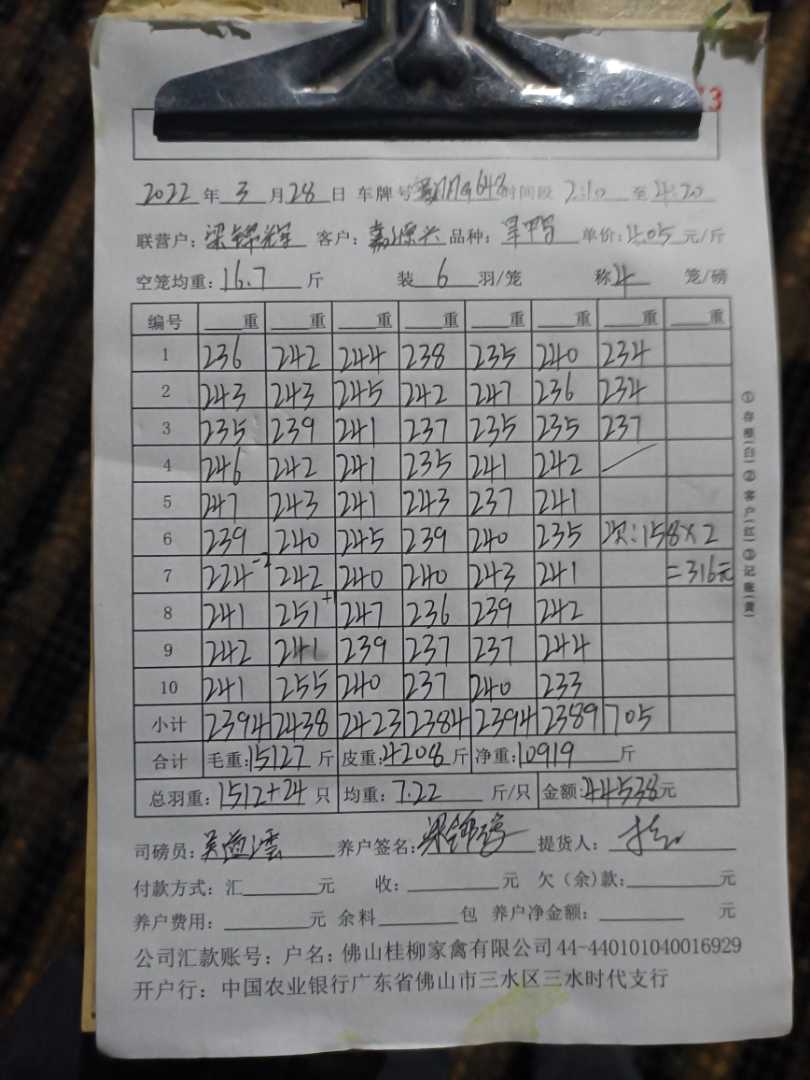 73
2022 年 3 月 28 日 车牌号 时间段 2:10 至 4:20
联营户: 梁锦辉 客户: 嘉源兴 品种: 旱鸭 单价: 4.05 元/斤
空笼均重: 16.7 斤 装 6 羽/笼 称 4 笼/磅
编号 重 重 重 重 重 重 重 重
1 236 242 244 238 235 240 234
2 243 243 245 242 247 236 234
3 235 239 241 237 235 235 237
4 246 242 241 235 241 242 /
5 247 243 241 243 237 241
6 239 240 245 239 240 235 次:158×2
7 224-2 242 240 240 243 241 =316元
8 241 251+1 247 236 239 242
9 242 241 239 237 237 244
10 241 255 240 237 240 233
小计 2394 2438 2423 2384 2394 2389 705
合计 毛重: 15127 斤 皮重: 4208 斤 净重: 10919 斤
总羽重: 1512+24 只 均重: 7.22 斤/只 金额: 44538元
司磅员: 养户签名: 提货人:
付款方式: 汇 元 收: 元 欠(余)款: 元
养户费用: 元 余料 包 养户净金额: 元
公司汇款账号: 户名: 佛山桂柳家禽有限公司 44-440101040016929
开户行: 中国农业银行广东省佛山市三水区三水时代支行
①存根(白)②客户(红)③记账(黄)